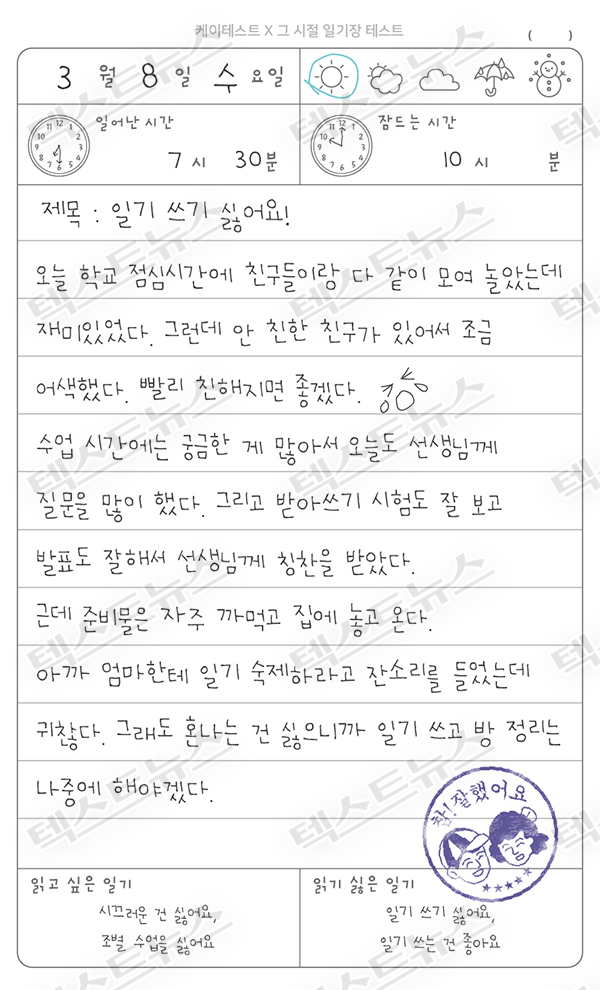 케이테스트 X 그 시절 일기장 테스트
( )
3 월 8 일 수 요일
일어난 시간
7 시 30 분
잠드는 시간
10 시 분
제목 : 일기 쓰기 싫어요!
오늘 학교 점심시간에 친구들이랑 다 같이 모여 놀았는데
재미있었다. 그런데 안 친한 친구가 있어서 조금
어색했다. 빨리 친해지면 좋겠다.
수업 시간에는 궁금한 게 많아서 오늘도 선생님께
질문을 많이 했다. 그리고 받아쓰기 시험도 잘 보고
발표도 잘해서 선생님께 칭찬을 받았다.
근데 준비물은 자주 까먹고 집에 놓고 온다.
아까 엄마한테 일기 숙제하라고 잔소리를 들었는데
귀찮다. 그래도 혼나는 건 싫으니까 일기 쓰고 방 정리는
나중에 해야겠다.
참! 잘했어요
읽고 싶은 일기
시끄러운 건 싫어요,
조별 수업을 싫어요
읽기 싫은 일기
일기 쓰기 싫어요,
일기 쓰는 건 좋아요
텍스트뉴스